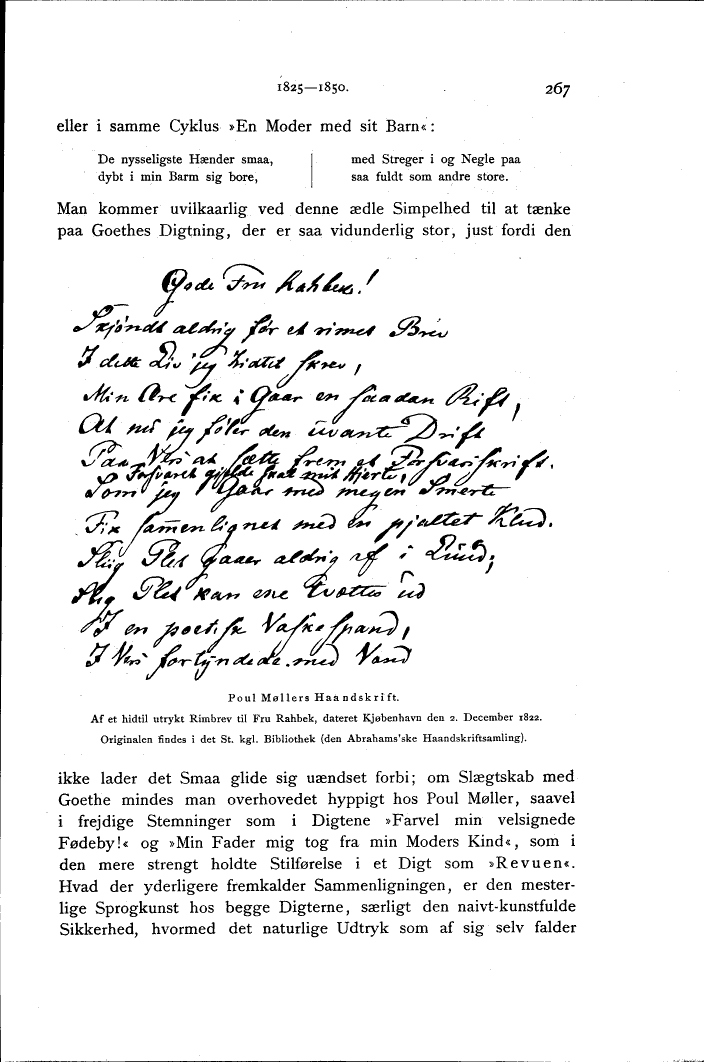 1825—1850.
267
eller i samme Cyklus »En Moder med sit Barn«:
De nysseligste Hænder smaa,
dybt i min Barm sig bore,
med Streger i og Negle paa
saa fuldt som andre store.
Man kommer uvilkaarlig ved denne ædle Simpelhed til at tænke
paa Goethes Digtning, der er saa vidunderlig stor, just fordi den
Gode Fru Rahbek!
Skjøndt aldrig før et rimet Brev
I dette Liv jeg hidtil skrev,
Min Ære fik i Gaar en saadan Rift,
At nu jeg føler den uvante Drift
Paa Vers at sætte frem et Forsvarsskrift.
Forsvaret gjelde skal mit Hjerte,
Som jeg i Gaar med megen Smerte
Fik sammenlignet med en pjaltet Klud.
Slig Plet gaaer aldrig af i Luud;
Slig Plet kan ene tvættes ud
I en poetisk Vaskespand,
I Vers fortyndede med Vand
Poul Møllers Haandskrift.
Af et hidtil utrykt Rimbrev til Fru Rahbek, dateret Kjøbenhavn den 2. December 1822.
Originalen findes i det St. kgl. Bibliothek (den Abrahams'ske Haandskriftsamling).
ikke lader det Smaa glide sig uændset forbi; om Slægtskab med
Goethe mindes man overhovedet hyppigt hos Poul Møller, saavel
i frejdige Stemninger som i Digtene »Farvel min velsignede
Fødeby!« og »Min Fader mig tog fra min Moders Kind«, som i
den mere strengt holdte Stilførelse i et Digt som »Revuen«.
Hvad der yderligere fremkalder Sammenligningen, er den mester-
lige Sprogkunst hos begge Digterne, særligt den naivt-kunstfulde
Sikkerhed, hvormed det naturlige Udtryk som af sig selv falder